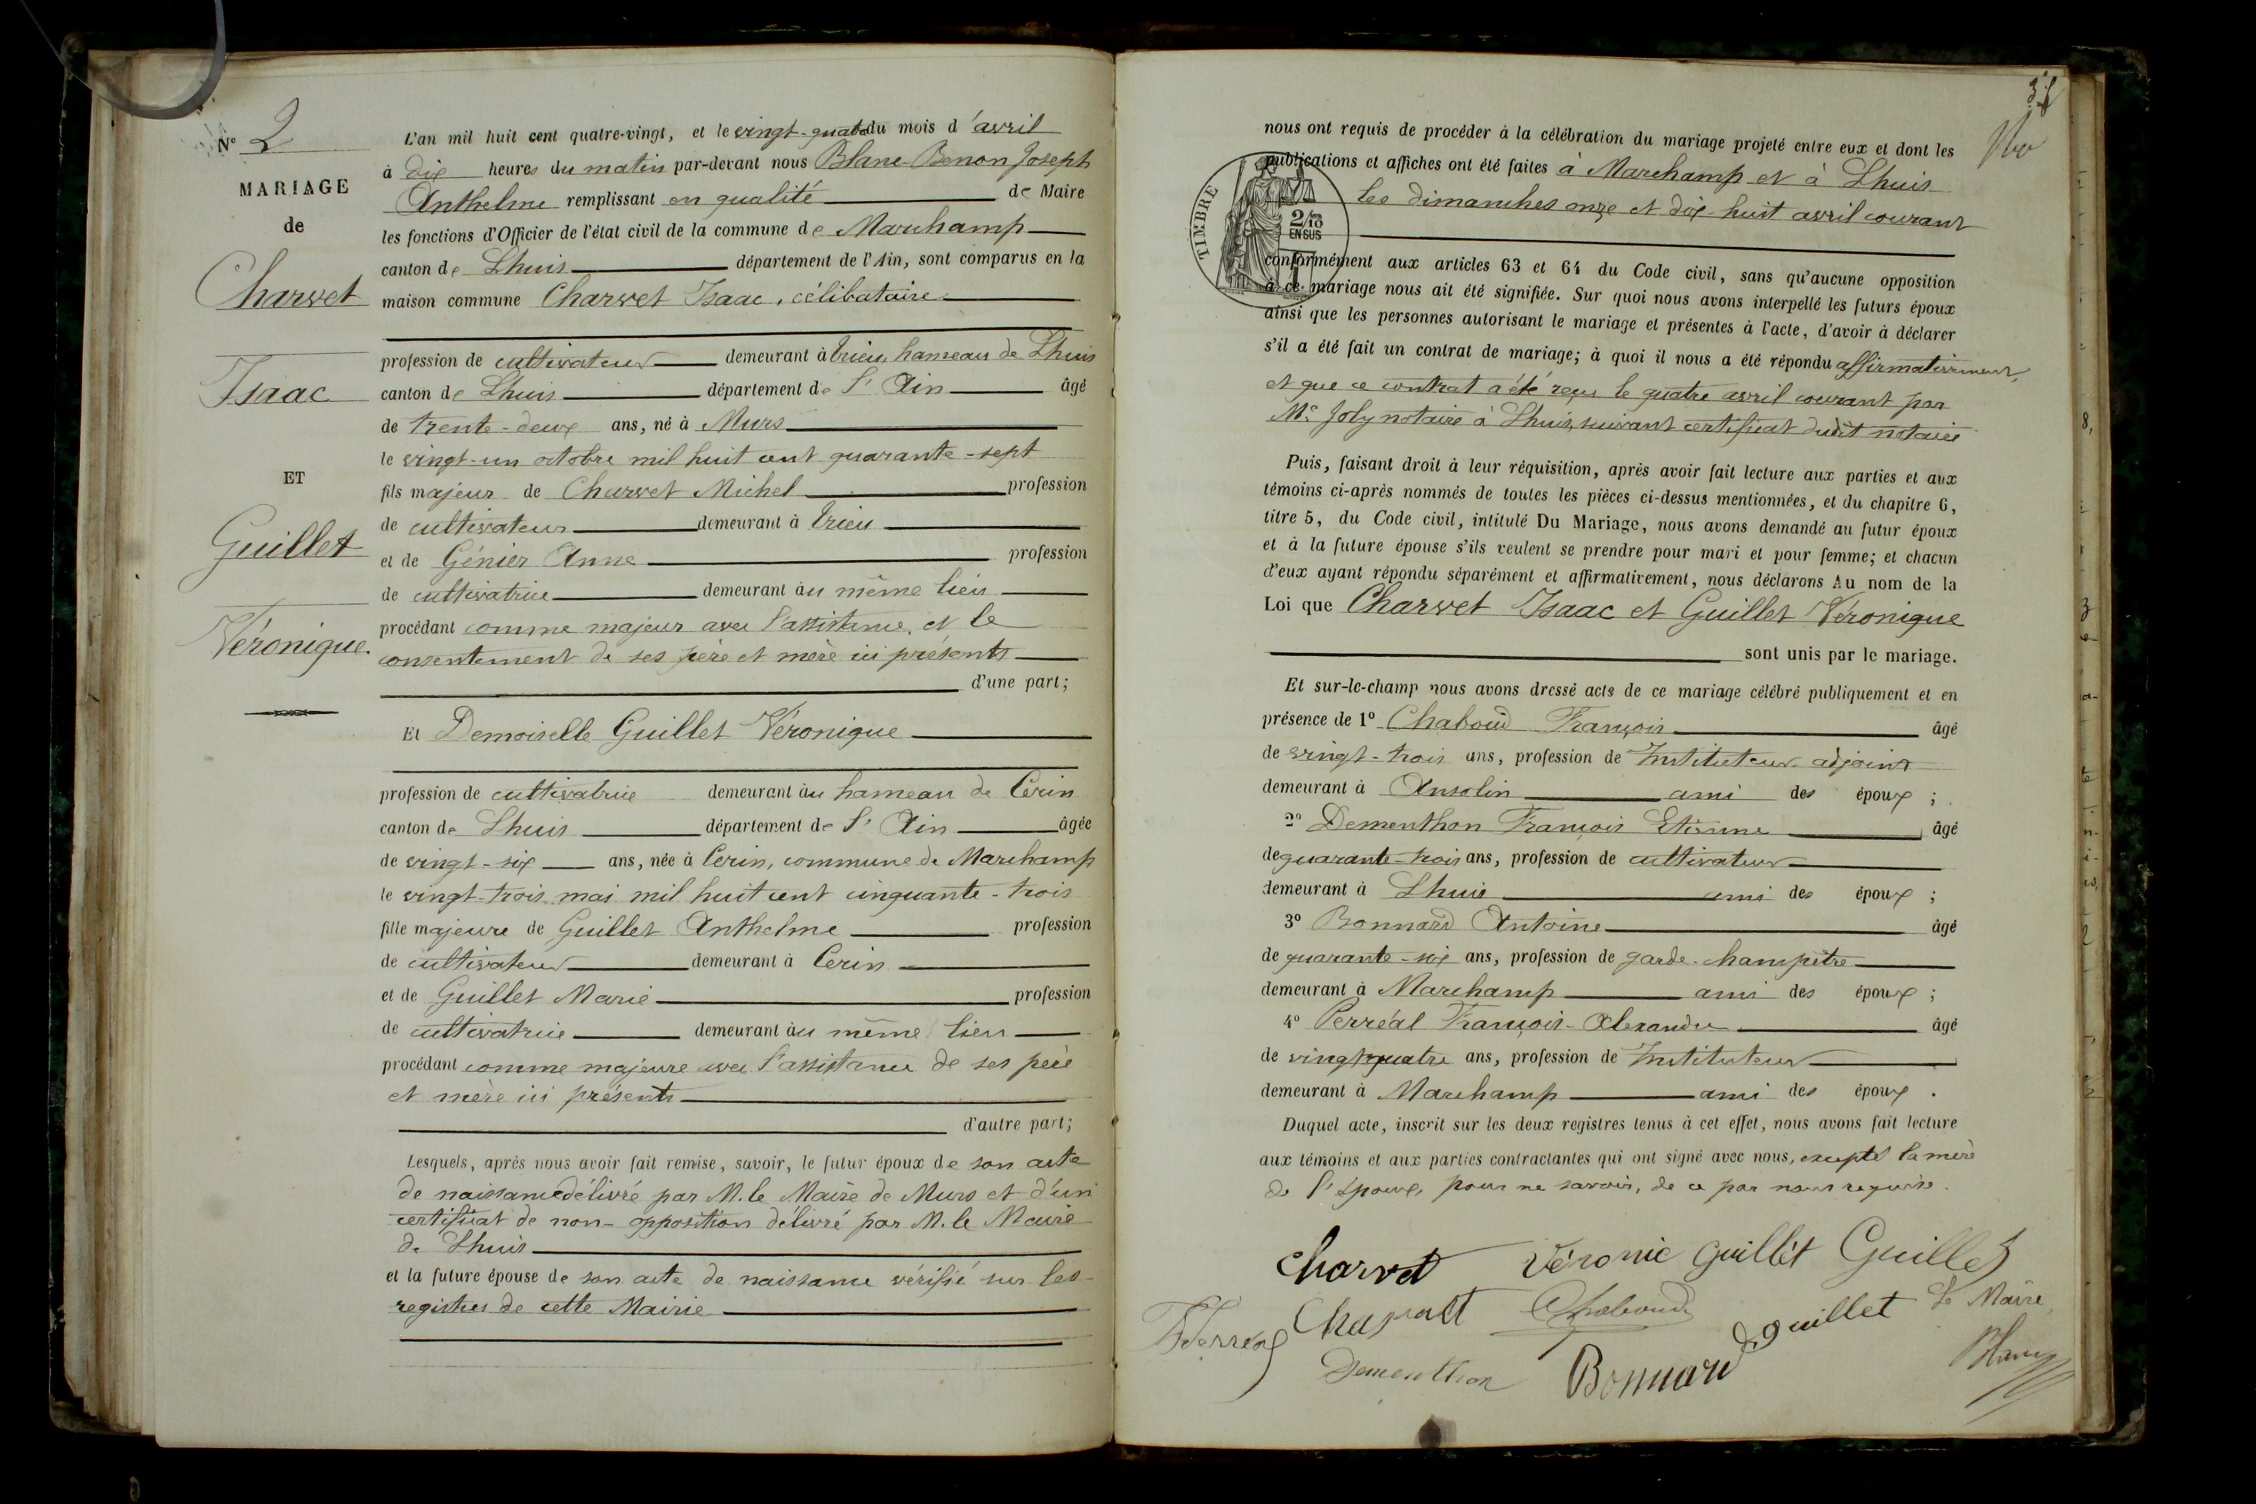 N° 2
MARIAGE
de
Charvet
Isaac
ET
Guillet
Véronique.
L'an mil huit cent quatre-vingt, et le vingt-quatre du mois d'avril
à dix heures du matin par-devant nous Blanc-Benon Joseph
Anthelme remplissant en qualité de Maire
les fonctions d'Officier de l'état civil de la commune de Marchamp
canton de Lhuis département de l'Ain, sont comparus en la
maison commune Charvet Isaac, célibataire
profession de cultivateur demeurant à Crieu, hameau de Lhuis
canton de Lhuis département de l'Ain âgé
de trente-deux ans, né à Murs
le vingt-un octobre mil huit cent quarante-sept
fils majeur de Charvet Michel profession
de cultivateur demeurant à Crieu
et de Génier Anne profession
de cultivatrice demeurant au même lieu
procédant comme majeur avec l'assistance et le
consentement de ses père et mère ici présents
d'une part;
Et Demoiselle Guillet Véronique
profession de cultivatrice demeurant au hameau de Cerin
canton de Lhuis département de l'Ain âgée
de vingt-six ans, née à Cerin, commune de Marchamp
le vingt-trois mai mil huit cent cinquante-trois
fille majeure de Guillet Anthelme profession
de cultivateur demeurant à Cerin
et de Guillet Marie profession
de cultivatrice demeurant au même lieu
procédant comme majeure avec l'assistance de ses père
et mère ici présents
d'autre part;
Lesquels, après nous avoir fait remise, savoir, le futur époux de son acte
de naissance délivré par M. le Maire de Murs et d'un
certificat de non-opposition délivré par M. le Maire
de Lhuis
et la future épouse de son acte de naissance vérifié sur les
registres de cette Mairie
nous ont requis de procéder à la célébration du mariage projeté entre eux et dont les
publications et affiches ont été faites à Marchamp et à Lhuis
les dimanches onze et dix-huit avril courant
TIMBRE
2/10
EN SUS
conformément aux articles 63 et 64 du Code civil, sans qu'aucune opposition
à ce mariage nous ait été signifiée. Sur quoi nous avons interpellé les futurs époux
ainsi que les personnes autorisant le mariage et présentes à l'acte, d'avoir à déclarer
s'il a été fait un contrat de mariage; à quoi il nous a été répondu affirmativement,
et que ce contrat a été reçu le quatre avril courant par
Me Joly notaire à Lhuis, suivant certificat dudit notaire
Puis, faisant droit à leur réquisition, après avoir fait lecture aux parties et aux
témoins ci-après nommés de toutes les pièces ci-dessus mentionnées, et du chapitre 6,
titre 5, du Code civil, intitulé Du Mariage, nous avons demandé au futur époux
et à la future épouse s'ils veulent se prendre pour mari et pour femme; et chacun
d'eux ayant répondu séparément et affirmativement, nous déclarons Au nom de la
Loi que Charvet Isaac et Guillet Véronique
sont unis par le mariage.
Et sur-le-champ nous avons dressé acte de ce mariage célébré publiquement et en
présence de 1° Chaboud François âgé
de vingt-trois ans, profession de Instituteur adjoint
demeurant à Ansolin ami des époux ;
2° Dementhon François Etienne âgé
de quarante-trois ans, profession de cultivateur
demeurant à Lhuis ami des époux ;
3° Bonnard Antoine âgé
de quarante-six ans, profession de garde-champêtre
demeurant à Marchamp ami des époux ;
4° Perréal François-Alexandre âgé
de vingt-quatre ans, profession de Instituteur
demeurant à Marchamp ami des époux .
Duquel acte, inscrit sur les deux registres tenus à cet effet, nous avons fait lecture
aux témoins et aux parties contractantes qui ont signé avec nous, excepté la mère
de l'époux, pour ne savoir, de ce par nous requise.
Charvet Véronic Guillet Guillet
Charvet Chaboud Guillet Le Maire
Perréal Dementhon Bonnard Blanc